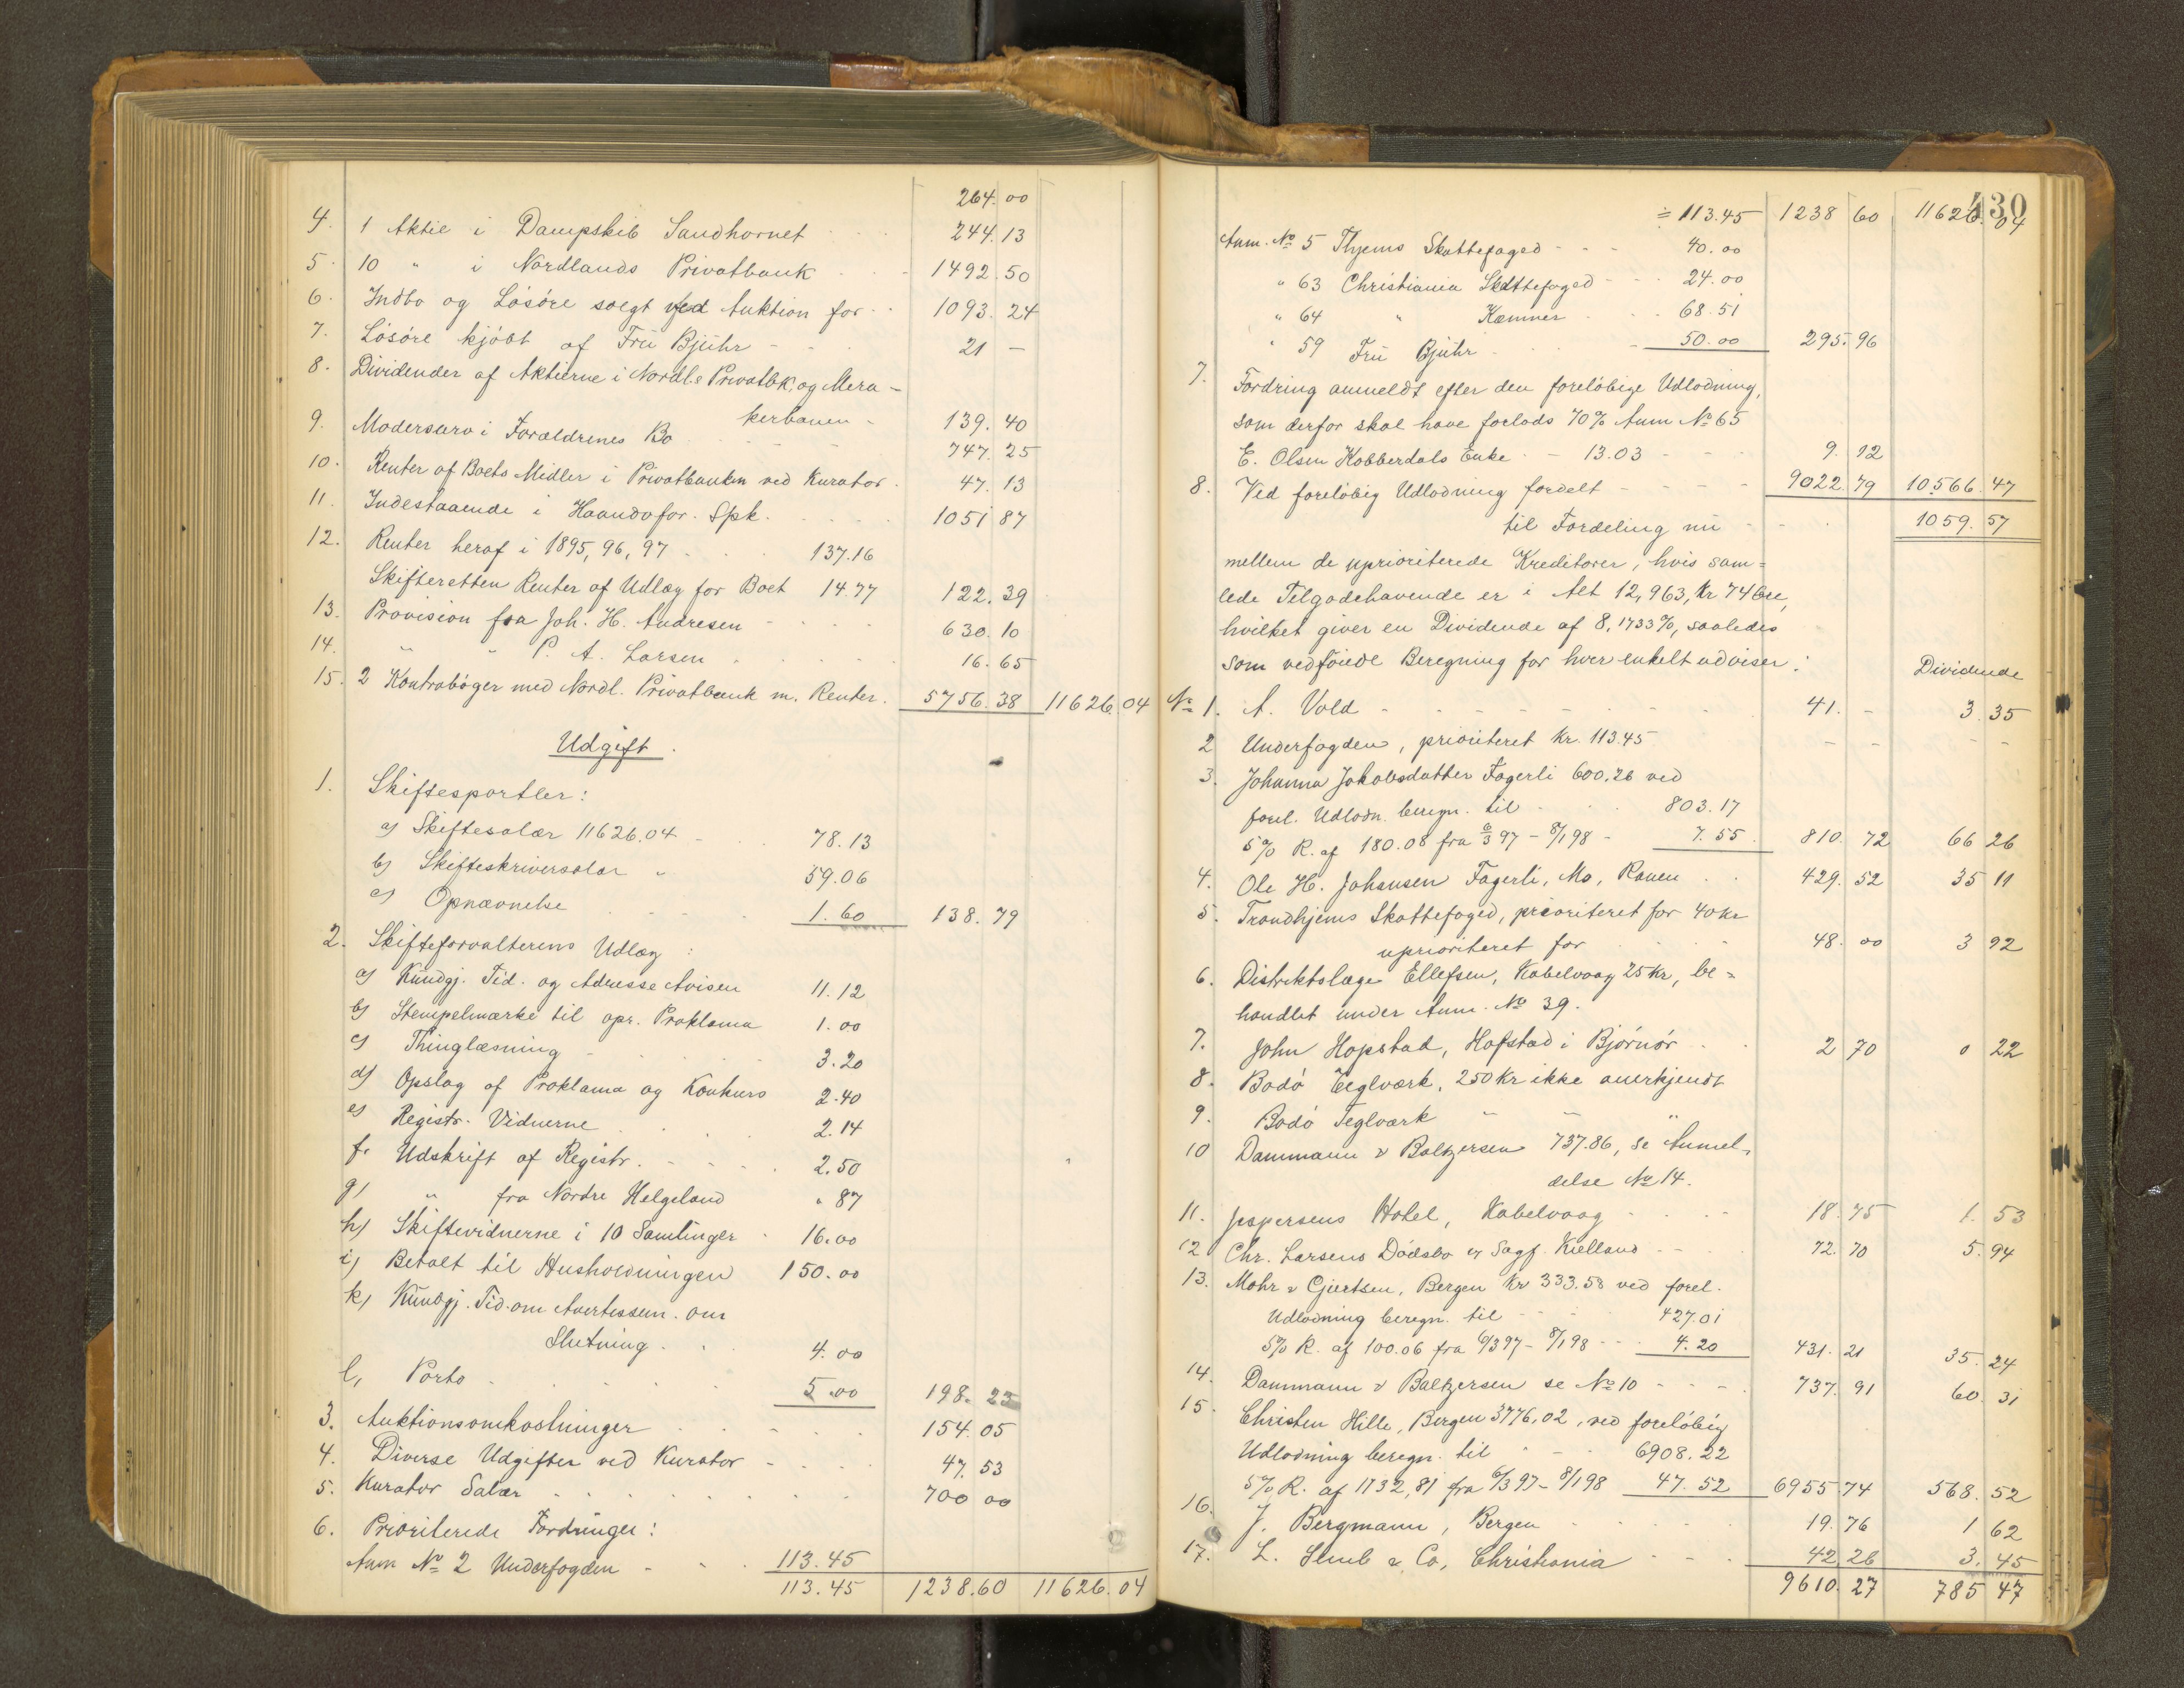 264.00
4. 1 Aktie i Dampskib Sandhornet 244.13
5. 10 " i Nordlands Privatbank 1492.50
6. Indbo og Løsøre solgt ved Auktion for 1093.24
7. Løsøre kjøbt af Fru Bjuhr 21 –
8. Dividender af Aktierne i Nordls Privatbk. og Mera-
kerbanen 139.40
9. Modersarv i Forældrenes Bo 747.25
10. Renter af Boets Midler i Privatbanken ved Kurator 47.13
11. Indestaaende i Haandv. for. Spk. 1051 87
12. Renter heraf i 1895, 96, 97 137.16
Skifteretten Renter af Udlæg for Boet 14.77 122.39
13. Provision fra Joh. H. Andresen 630.10
14. " " P. A. Larsen 16.65
15. 2 Kontrabøger med Nordl. Privatbank m. Renter. 5756.38 11626.04
Udgift.
1. Skiftesportler:
a) Skiftesalær 11626.04 78.13
b) Skifteskriversalær " 59.06
c) Opnævnelse 1.60 138.79
2. Skifteforvalterens Udlæg:
a) Kundgj. Tid. og Adresse Avisen 11.12
b) Stempelmærke til opr. Proklama 1.00
c) Thinglæsning 3.20
d) Opslag af Proklama og Konkurs 2.40
e) Registr. Vidnerne 2.14
f. Udskrift af Registr. 2.50
g) " fra Nordre Helgeland " 87
h) Skiftevidnerne i 10 Samlinger 16.00
i) Betalt til Husholdningen 150.00
k) Kundgj. Tid. om Avertissem. om
Slutning 4.00
l, Porto 5.00 198.23
3. Auktionsomkostninger 154.05
4. Diverse Udgifter ved Kurator 47.53
5. Kurator Salær 700 00
6. Prioriterede Fordringer:
Anm No 2 Underfogden 113.45
113.45 1238.60 11626.04
430
÷ 113.45 1238 60 11626.04
Anm. No 5 Thjems Skattefoged 40.00
" 63 Christiania Skattefoged 24.00
" 64 " Kæmner 68.51
" 59 Fru Bjuhr 50.00 295.96
7. Fordring anmeldt efter den foreløbige Udlodning,
som derfor skal have forlods 70% Anm No 65
E. Olsen Kobberdals Enke 13.03 9.12
8. Ved foreløbig Udlodning fordelt 9022.79 10566.47
til Fordeling nu 1059.57
mellem de uprioriterede Kreditorer, hvis sam=
lede Tilgodehavende er i Alt 12,963, Kr 74 Øre,
hvilket giver en Dividende af 8,1733%, saaledes
som vedføiede Beregning for hver enkelt udviser:
Dividende
No 1. A. Vold 41. – 3.35
2 Underfogden, prioriteret Kr. 113.45 – – – –
3. Johanna Jakobsdatter Fagerli 600.26 ved
forel. Udlodn. beregn. til 803.17
5% R. af 180.08 fra 6/3 97 – 8/1 98 – 7.55 810.72 66 26
4. Ole H. Johansen Fagerli, Mo, Ranen 429.52 35 11
5. Trondhjems Skattefoged, prioriteret for 40 Kr
uprioriteret for 48.00 3 92
6. Distriktslæge Ellefsen, Kabelvaag 25 Kr, be=
handlet under Anm. No 39.
7. John Hopstad, Hofstad i Bjørnør 2 70 0 22
8. Bodø Teglværk, 250 Kr ikke anerkjendt
9. Bodø Teglværk " " "
10 Dammann & Baltzersen 737.86, se Anmel-
delse No 14.
11. Jespersens Hotel, Kabelvaag 18.75 1.53
12 Chr. Larsens Dødsbo v/ Sagf. Kielland 72.70 5.94
13. Mohr & Gjertsen, Bergen Kr 333.58 ved forel.
Udlodning beregn. til 427.01
5% R. af 100.06 fra 6/3 97 – 8/1 98 4.20 431.21 35.24
14. Dammann & Baltzersen se No 10 737.91 60.31
15. Christen Hille, Bergen 3776,02, ved foreløbig
Udlodning beregn. til 6908.22
5% R. af 1132,81 fra 6/3 97 – 8/1 98 47.52 6955.74 568.52
16. J. Bergmann, Bergen 19.76 1 62
17. L. & Co, Christiania 42.26 3.45
9610.27 785 47